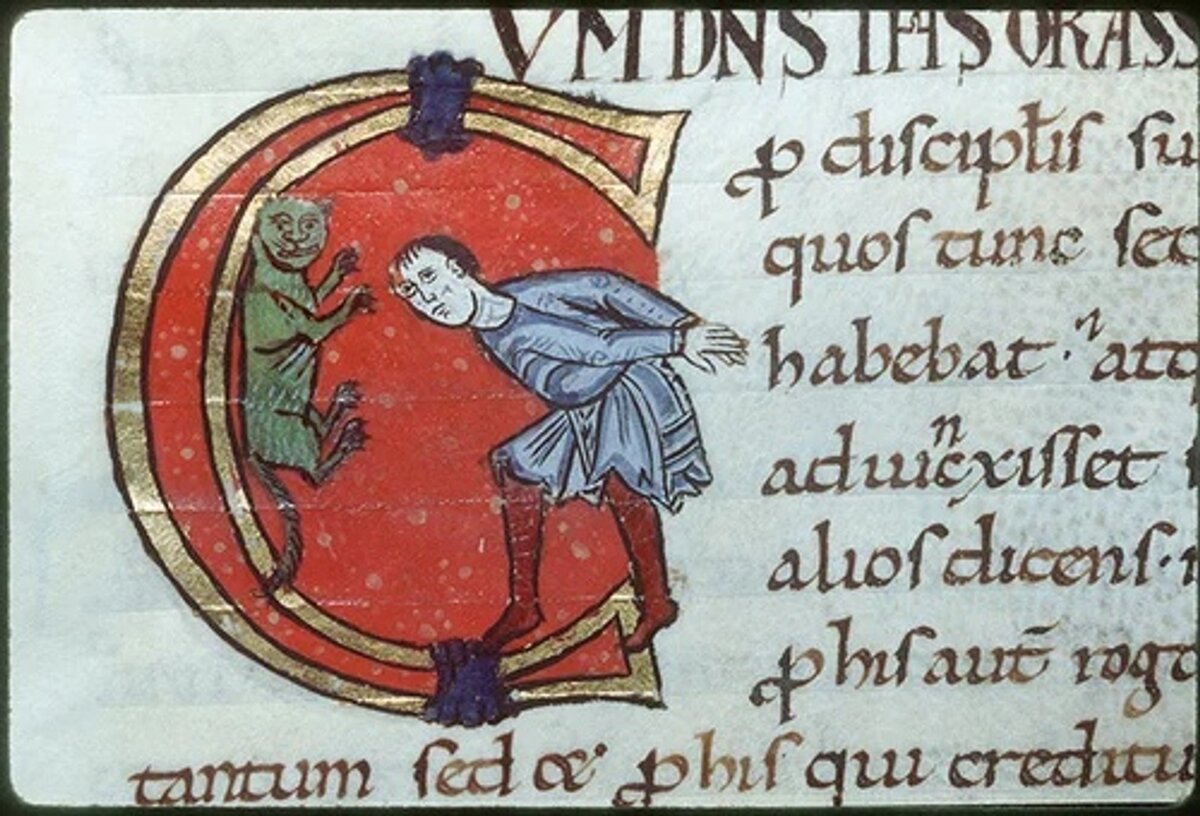 CUM DNS IHS ORASS
p disciplis su
quos tunc sec
habebat · att
adiuxisset
alios dicens ·
p his aut roga
tantum sed & p his qui creditu